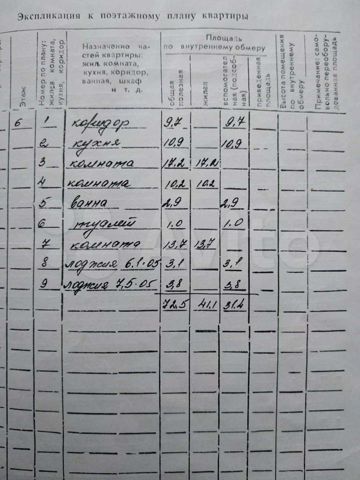 Экспликация к поэтажному плану квартиры
Этаж
Номер по плану: жилая комната, кухня, коридор
Назначение частей квартиры: жил. комната, кухня, коридор, ванная, шкаф и т. д.
Площадь по внутреннему обмеру
общая полезная
жилая
вспомогательная (подсобная)
приведенная площадь
Высота помещения по внутреннему обмеру
Примечание: самовольно переоборудованная площадь
6 1 коридор 9,7 9,7
2 кухня 10,9 10,9
3 комната 17.2 17.2
4 комната 10,2 10,2
5 ванна 2,9 2,9
6 туалет 1.0 1.0
7 комната 13,7 13,7
8 лоджия 6.1·05 3,1 3,1
9 лоджия 7,5·05 3,8 3,8
72.5 41.1 31.4